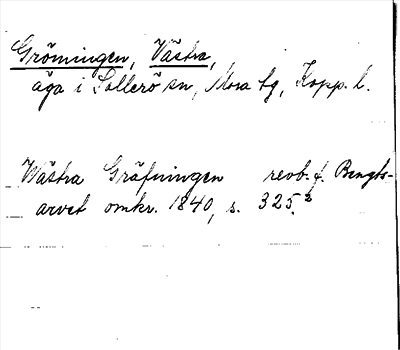 Gröningen, Västra,
äga i Sollerö sn, Mora tg, Kopp. l.
Wästra Gräfningen revb. f. Bengts-
arvet omkr. 1840, s. 325.²